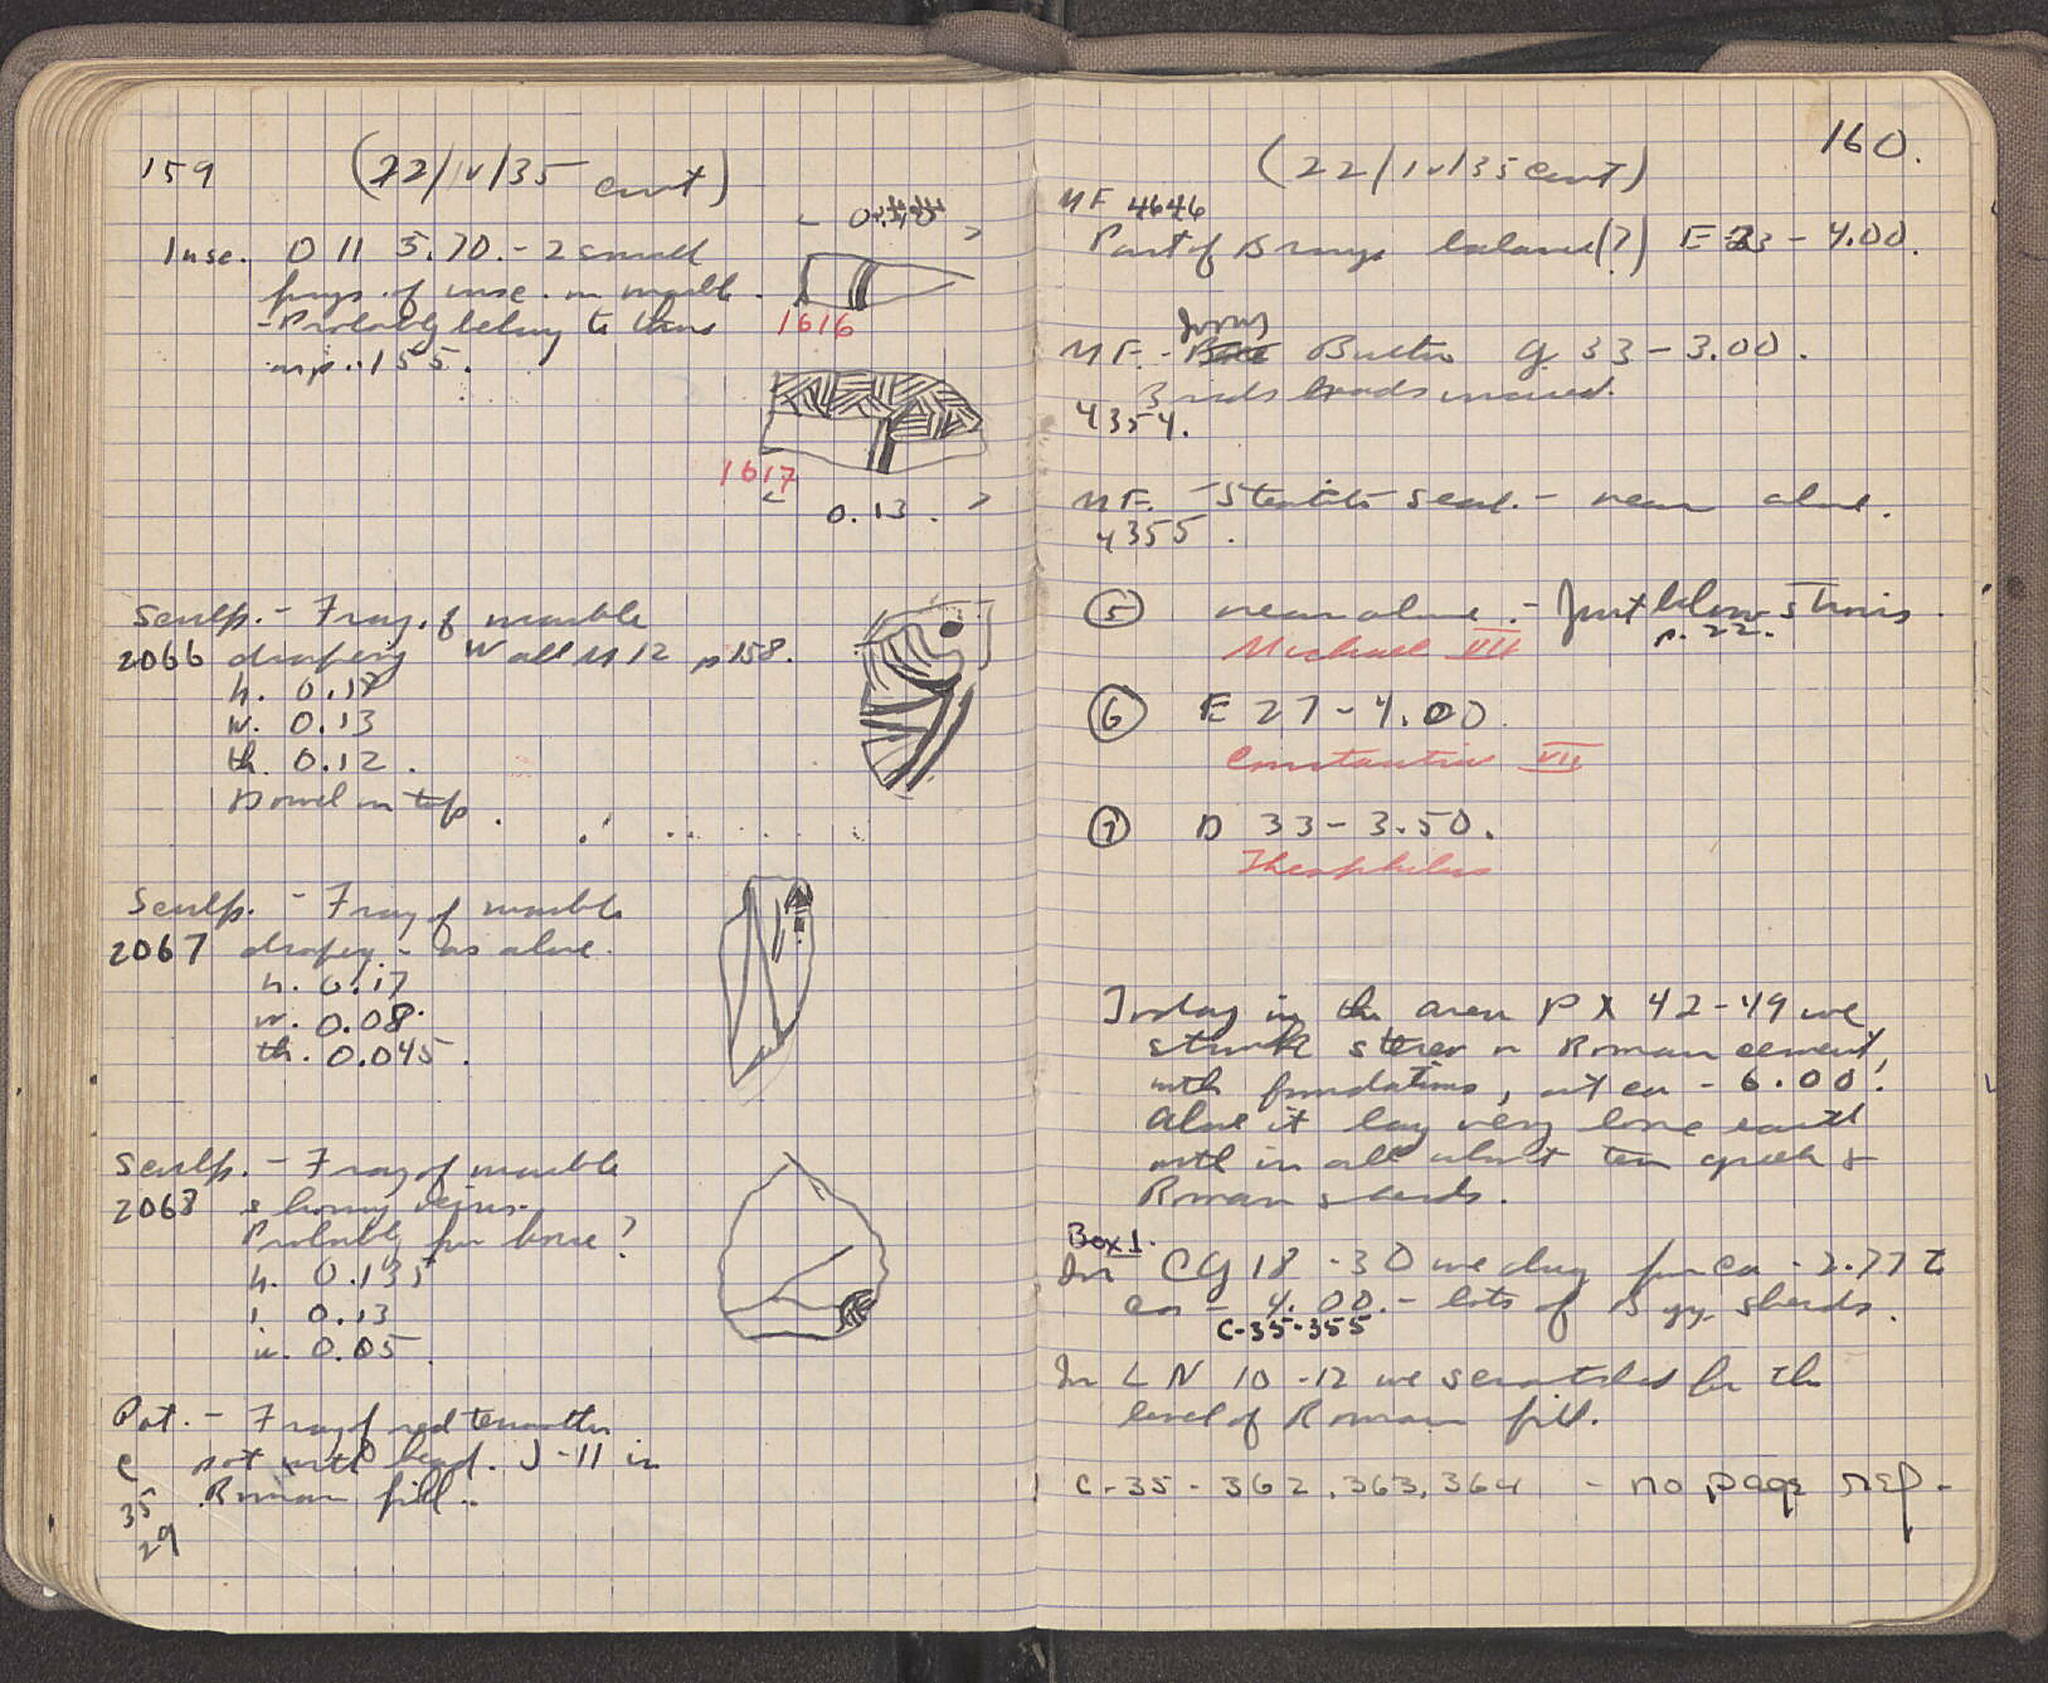 159 (22/IV/35 cont)
Insc. O 11 5.70. - 2 small
frags. of insc. on marble.
- Probably belong to those
on p. 155.
1616
1617
0.13.
Sculp. - Frag. of marble
2066 drapery Wall M 12 p 158.
h. 0.17
w. 0.13
th. 0.12.
Dowel in top.
Sculp. - Frag of marble
2067 drapery - as above.
h. 0.17
w. 0.08.
th. 0.045.
Sculp. - Frag of marble
2068 showing veins.
Probably from horse?
h. 0.135
l. 0.13
w. 0.05.
Pot. - Frag of red terracotta
C pot with head. J-11 in
35 Roman fill.
29
160.
(22/IV/35 cont)
MF 4646
Part of Bronze balance(?) E 23 - 4.00.
Ivory
MF. - Button G 33 - 3.00.
3 inds beads incised.
4354.
MF. - Steatite seal. - near above.
4355.
⑤ near above. - Just below Stairs.
p. 22.
Michael VII
⑥ E 27 - 4.00.
Constantin VII
⑦ D 33 - 3.50.
Theophilus
Today in the area P X 42-49 we
struck stereo in Roman cement,
with foundations, at ca - 6.00!
Above it lay very loose earth
with in all about ten greek &
Roman sherds.
Box 1.
In CG 18 - 30 we dug from ca - 2.77 to
ca - 4.00. - lots of Byz. sherds.
C-35-355
In LN 10-12 we scratched for the
level of Roman fill.
C-35-362, 363, 364 - no page ref.